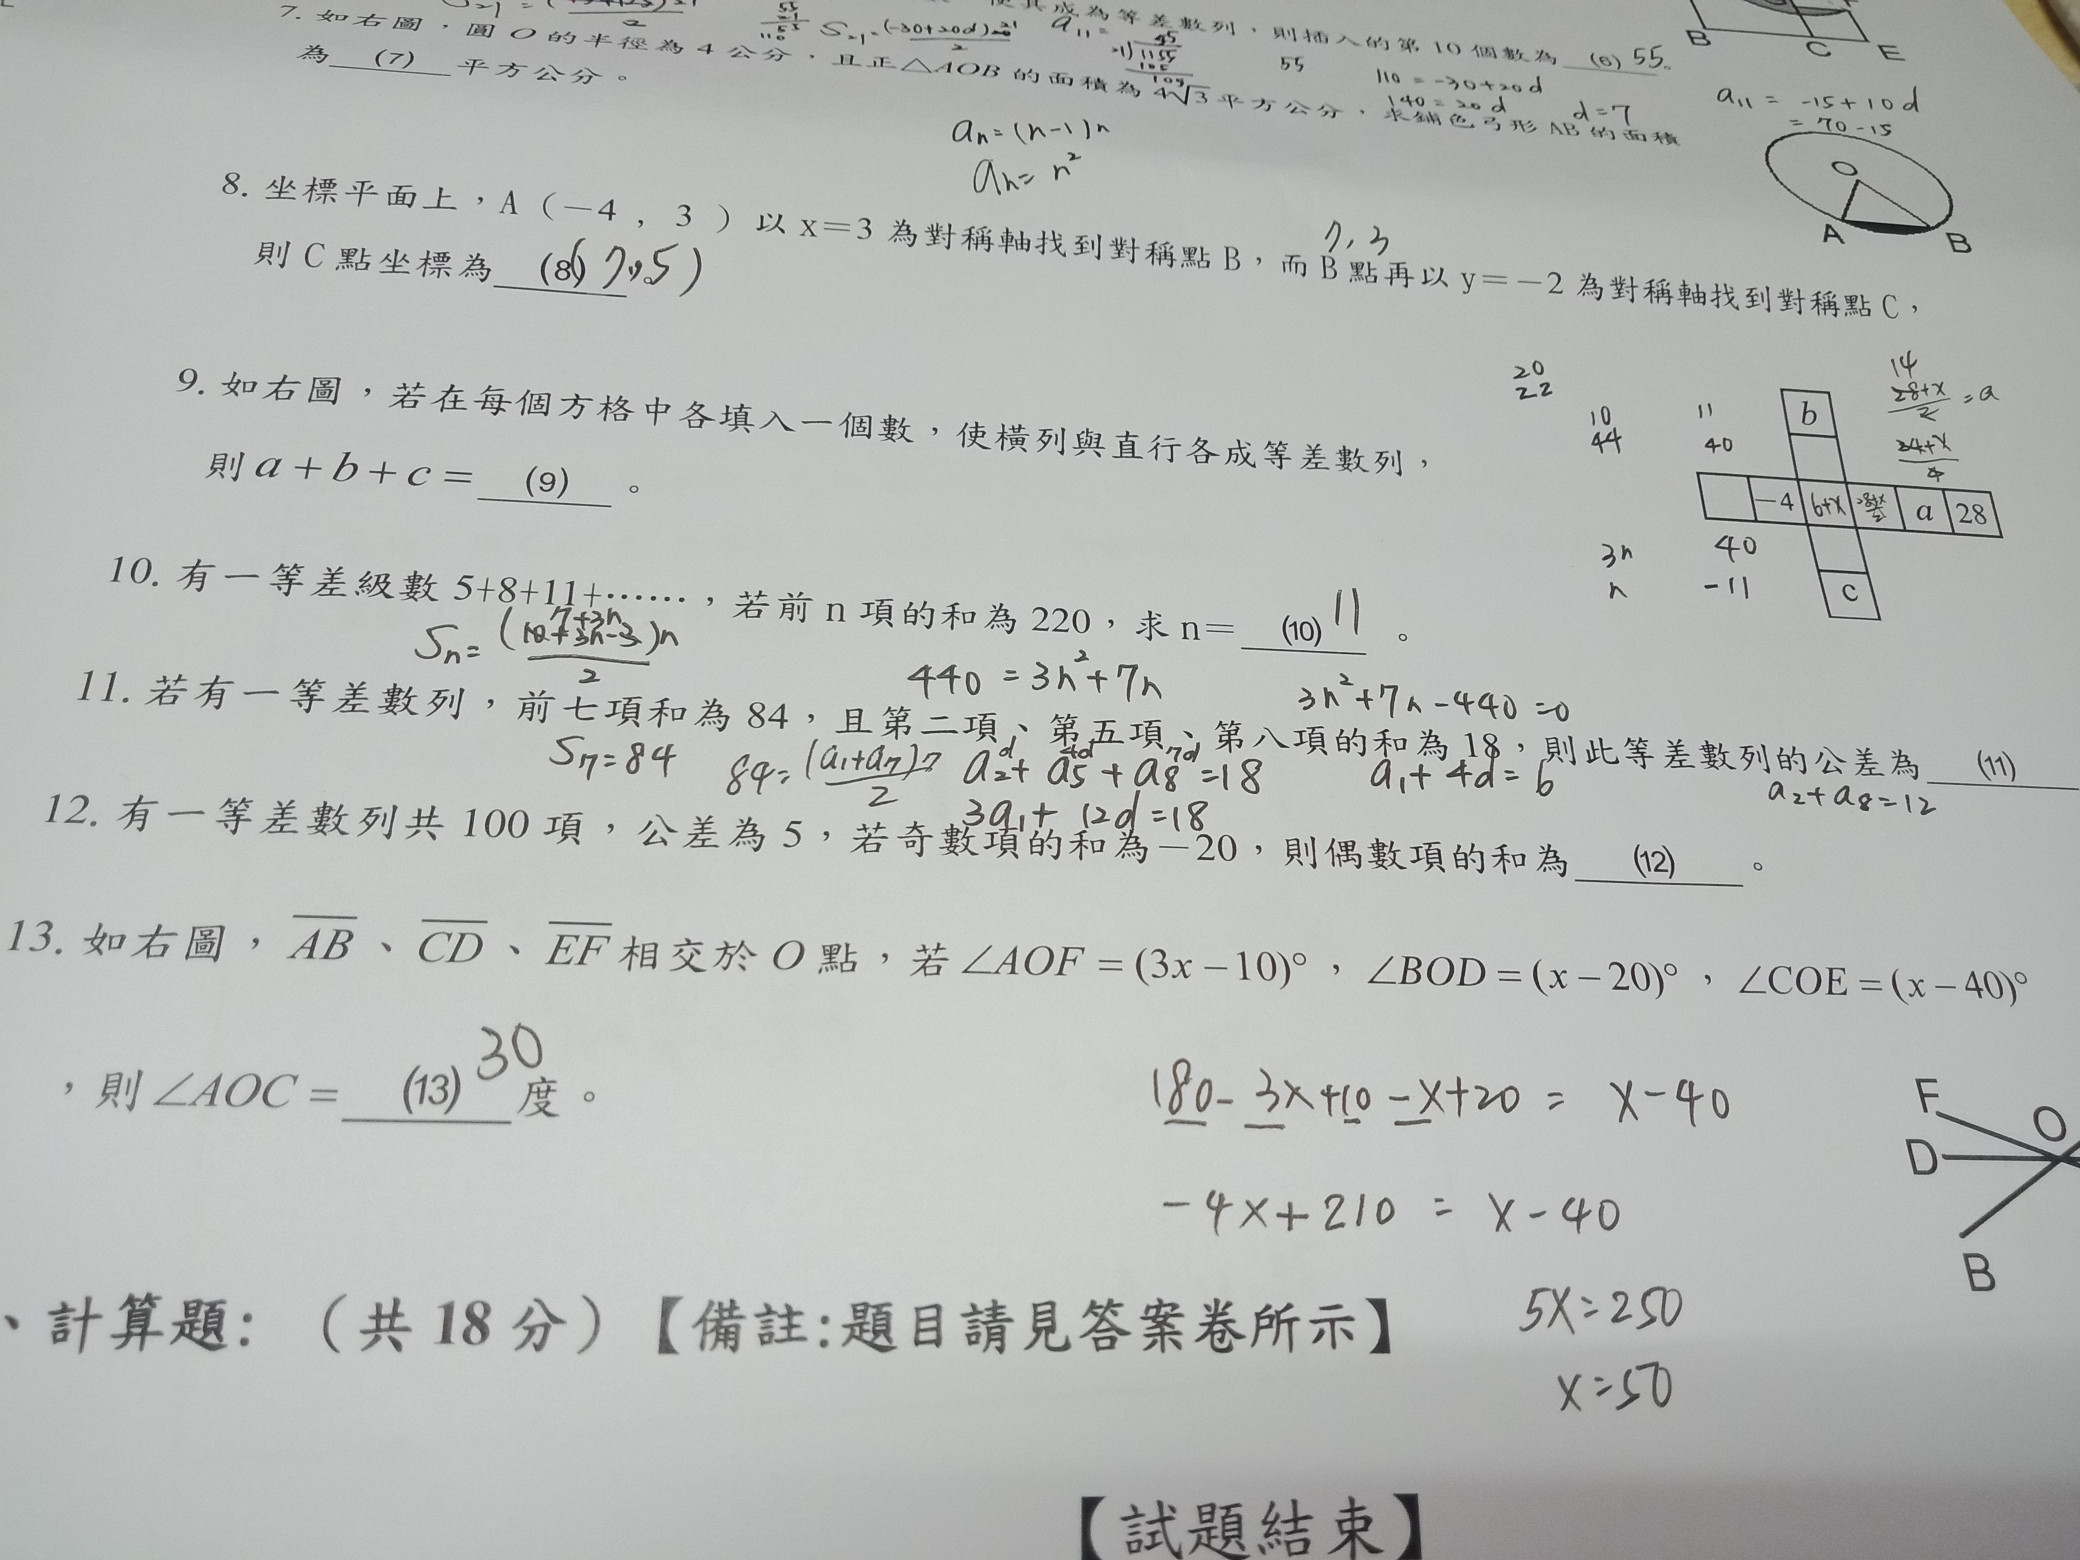 使其成為等差數列,則插入的第10個數為 (6) 55。
7. 如右圖,圓O的半徑為4公分,且正△AOB的面積為4√3平方公分,求鋪色弓形AB的面積
為 (7) 平方公分。
S₂₁=(-30+20d)21/2
a₁₁=
55
110=-30+20d
140=20d
d=7
a₁₁=-15+10d
=70-15
B C E
O
A B
aₙ=(n-1)n
aₙ=n²
8. 坐標平面上,A(-4,3)以x=3為對稱軸找到對稱點B,而B點再以y=-2為對稱軸找到對稱點C,
7,3
則C點坐標為 (8) (7,5)
9. 如右圖,若在每個方格中各填入一個數,使橫列與直行各成等差數列,
則a+b+c= (9) 。
20
22
10 11
44 40
14
28+x/2=a
24+x/4
b
-4 6+x a 28
c
3n 40
n -11
10. 有一等差級數5+8+11+……,若前n項的和為220,求n= (10) 11 。
7+3n
Sₙ=(10+3n-3)n/2
440=3n²+7n
3n²+7n-440=0
11. 若有一等差數列,前七項和為84,且第二項、第五項、第八項的和為18,則此等差數列的公差為 (11)
S₇=84
84=(a₁+a₇)7/2
d 4d 7d
a₂+a₅+a₈=18
a₁+4d=6
a₂+a₈=12
3a₁+12d=18
12. 有一等差數列共100項,公差為5,若奇數項的和為-20,則偶數項的和為 (12) 。
13. 如右圖,AB、CD、EF相交於O點,若∠AOF=(3x-10)°,∠BOD=(x-20)°,∠COE=(x-40)°
,則∠AOC= (13) 30 度。
180-3x+10-x+20=x-40
-4x+210=x-40
5x=250
x=50
F
O
D
B
、計算題:(共18分)【備註:題目請見答案卷所示】
【試題結束】